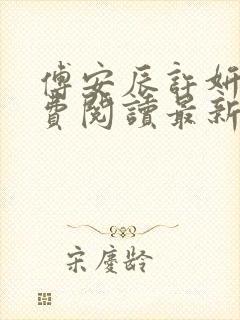 傅安辰許妍
費閱讀最新
宋慶龄